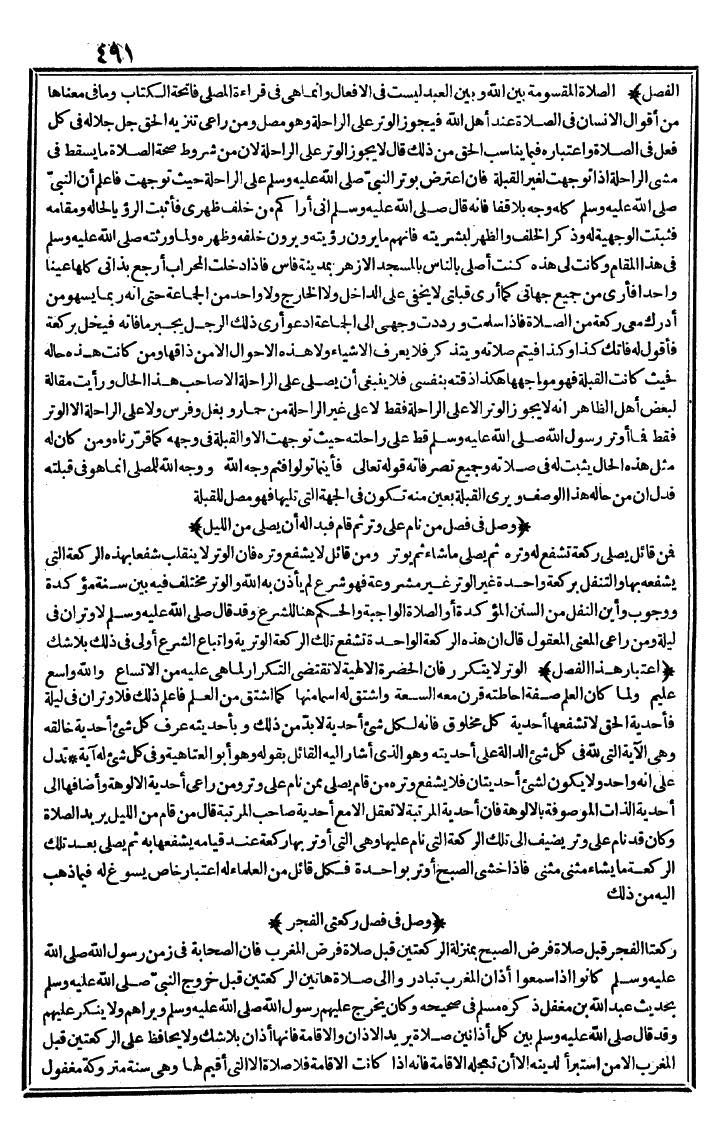 ٤٩١
الفصل﴾ الصلاة المقسومة بين الله وبين العبد ليست فى الافعال وانماهى فى قراءة المصلى فاتحة الكتاب ومافى معناها
من أقوال الانسان فى الصلاة عند أهل الله فيجوز الوتر على الراحلة وهو مصل ومن راعى تنزيه الحق جل جلاله فى كل
فعل فى الصلاة واعتباره فيما يناسب الحق من ذلك قال لا يجوز الوتر على الراحلة لان من شروط صحة الصلاة ما يسقط فى
مشى الراحلة اذا توجهت لغير القبلة فان اعترض بوتر النبىّ صلى الله عليه وسلم على الراحلة حيث توجهت فاعلم أن النبىّ
صلى الله عليه وسلم كله وجه بلا قفا فانه قال صلى الله عليه وسلم انى أراكم من خلف ظهرى فأثبت الرؤيا لحاله ومقامه
فثبتت الوجهية له وذكر الخلف والظهر لبشريته فانهم ما يرون رؤيته ويرون خلفه وظهره ولما ورثته صلى الله عليه وسلم
فى هذا المقام وكانت لى هذه كنت أصلى بالناس بالمسجد الازهر بمدينة فاس فاذا دخلت المحراب أرجع بذاتى كلها عينا
واحدا فأرى من جميع جهاتى كما أرى قبلتى لا يخفى على الداخل ولا الخارج ولا واحد من الجماعة حتى انه ربما يسهو من
أدرك معى ركعة من الصلاة فاذا سلمت ورددت وجهى الى الجماعة ادعو أرى ذلك الرجل يجبر مافاته فيخل بركعة
فأقول له فاتك كذا وكذا فيتم صلاته ويتذكر فلا يعرف الاشياء ولا هذه الاحوال الامن ذاقها ومن كانت هذه حاله
فحيث كانت القبلة فهو مواجهها هكذا ذقته بنفسى فلا ينبغى أن يصلى على الراحلة الا صاحب هذا الحال ورأيت مقالة
لبعض أهل الظاهر انه لا يجوز الوتر الا على الراحلة فقط لا على غير الراحلة من حمار وبغل وفرس ولا على الراحلة الا الوتر
فقط فما أوتر رسول الله صلى الله عليه وسلم قط على راحلته حيث توجهت الا والقبلة فى وجهه كما قرّرناه ومن كان له
مثل هذه الحال يثبت له فى صلاته وجميع تصرفاته قوله تعالى فأينما تولوا فثم وجه الله ووجه الله للمصلى انما هو فى قبلته
فدل ان من حاله هذا الوصف ويرى القبلة بعين منه تكون فى الجهة التى تليها فهو مصل للقبلة
﴿وصل فى فصل من نام على وتر ثم قام فبدا له أن يصلى من الليل﴾
فمن قائل يصلى ركعة تشفع له وتره ثم يصلى ماشاء ثم يوتر ومن قائل لا يشفع وتره فان الوتر لا ينقلب شفعا بهذه الركعة التى
يشفعه بها والتنفل بركعة واحدة غير الوتر غير مشروعة فهو شرع لم يأذن به الله والوتر مختلف فيه بين سنة مؤكدة
ووجوب وأين النفل من السنن المؤكدة أو الصلاة الواجبة والحكم هنا للشرع وقد قال صلى الله عليه وسلم لا وتران فى
ليلة ومن راعى المعنى المعقول قال ان هذه الركعة الواحدة تشفع تلك الركعة الوترية واتباع الشرع أولى فى ذلك بلاشك
﴿اعتبار هذا الفصل﴾ الوتر لا يتكرر فان الحضرة الالهية لا تقتضى التكرار لماهى عليه من الاتساع والله واسع
عليم ولما كان العلم صفة احاطته قرن معه السعة واشتق له اسما منها كما اشتق من العلم فاعلم ذلك فلا وتران فى ليلة
فأحدية الحق لا تشفعها أحدية كل مخلوق فانه لكل شئ أحدية لا بدّ من ذلك وبأحديته عرف كل شئ أحدية خالقه
وهى الآية التى لله فى كل شئ الدالة على أحديته وهو الذى أشار اليه القائل بقوله وهو أبو العتاهية وفى كل شئ له آية * تدل
على انه واحد ولا يكون لشئ أحديتان فلا يشفع وتره من قام يصلى ممن نام على وتر ومن راعى أحدية الالوهة وأضافها الى
أحدية الذات الموصوفة بالالوهة فان أحدية المرتبة لا تعقل الا مع أحدية صاحب المرتبة قال من قام من الليل يريد الصلاة
وكان قد نام على وتر يضيف الى تلك الركعة التى نام عليها وهى التى أوتر بها ركعة عند قيامه يشفعها به ثم يصلى بعد تلك
الركعة مايشاء مثنى مثنى فاذا خشى الصبح أوتر بواحدة فكل قائل من العلماء له اعتبار خاص يسوغ له فيما ذهب
اليه من ذلك
﴿وصل فى فصل ركعتى الفجر﴾
ركعتا الفجر قبل صلاة فرض الصبح بمنزلة الركعتين قبل صلاة فرض المغرب فان الصحابة فى زمن رسول الله صلى الله
عليه وسلم كانوا اذا سمعوا أذان المغرب تبادروا الى صلاة هاتين الركعتين قبل خروج النبىّ صلى الله عليه وسلم
بحديث عبد الله بن مغفل ذكره مسلم فى صحيحه وكان يخرج عليهم رسول الله صلى الله عليه وسلم ويراهم ولا ينكر عليهم
وقد قال صلى الله عليه وسلم بين كل أذانين صلاة يريد الاذان والاقامة فانها أذان بلاشك ولا يحافظ على الركعتين قبل
المغرب الامن استبرأ لدينه الا أن تعجله الاقامة فانه اذا كانت الاقامة فلا صلاة الا التى أقيم لها وهى سنة متروكة مغفول